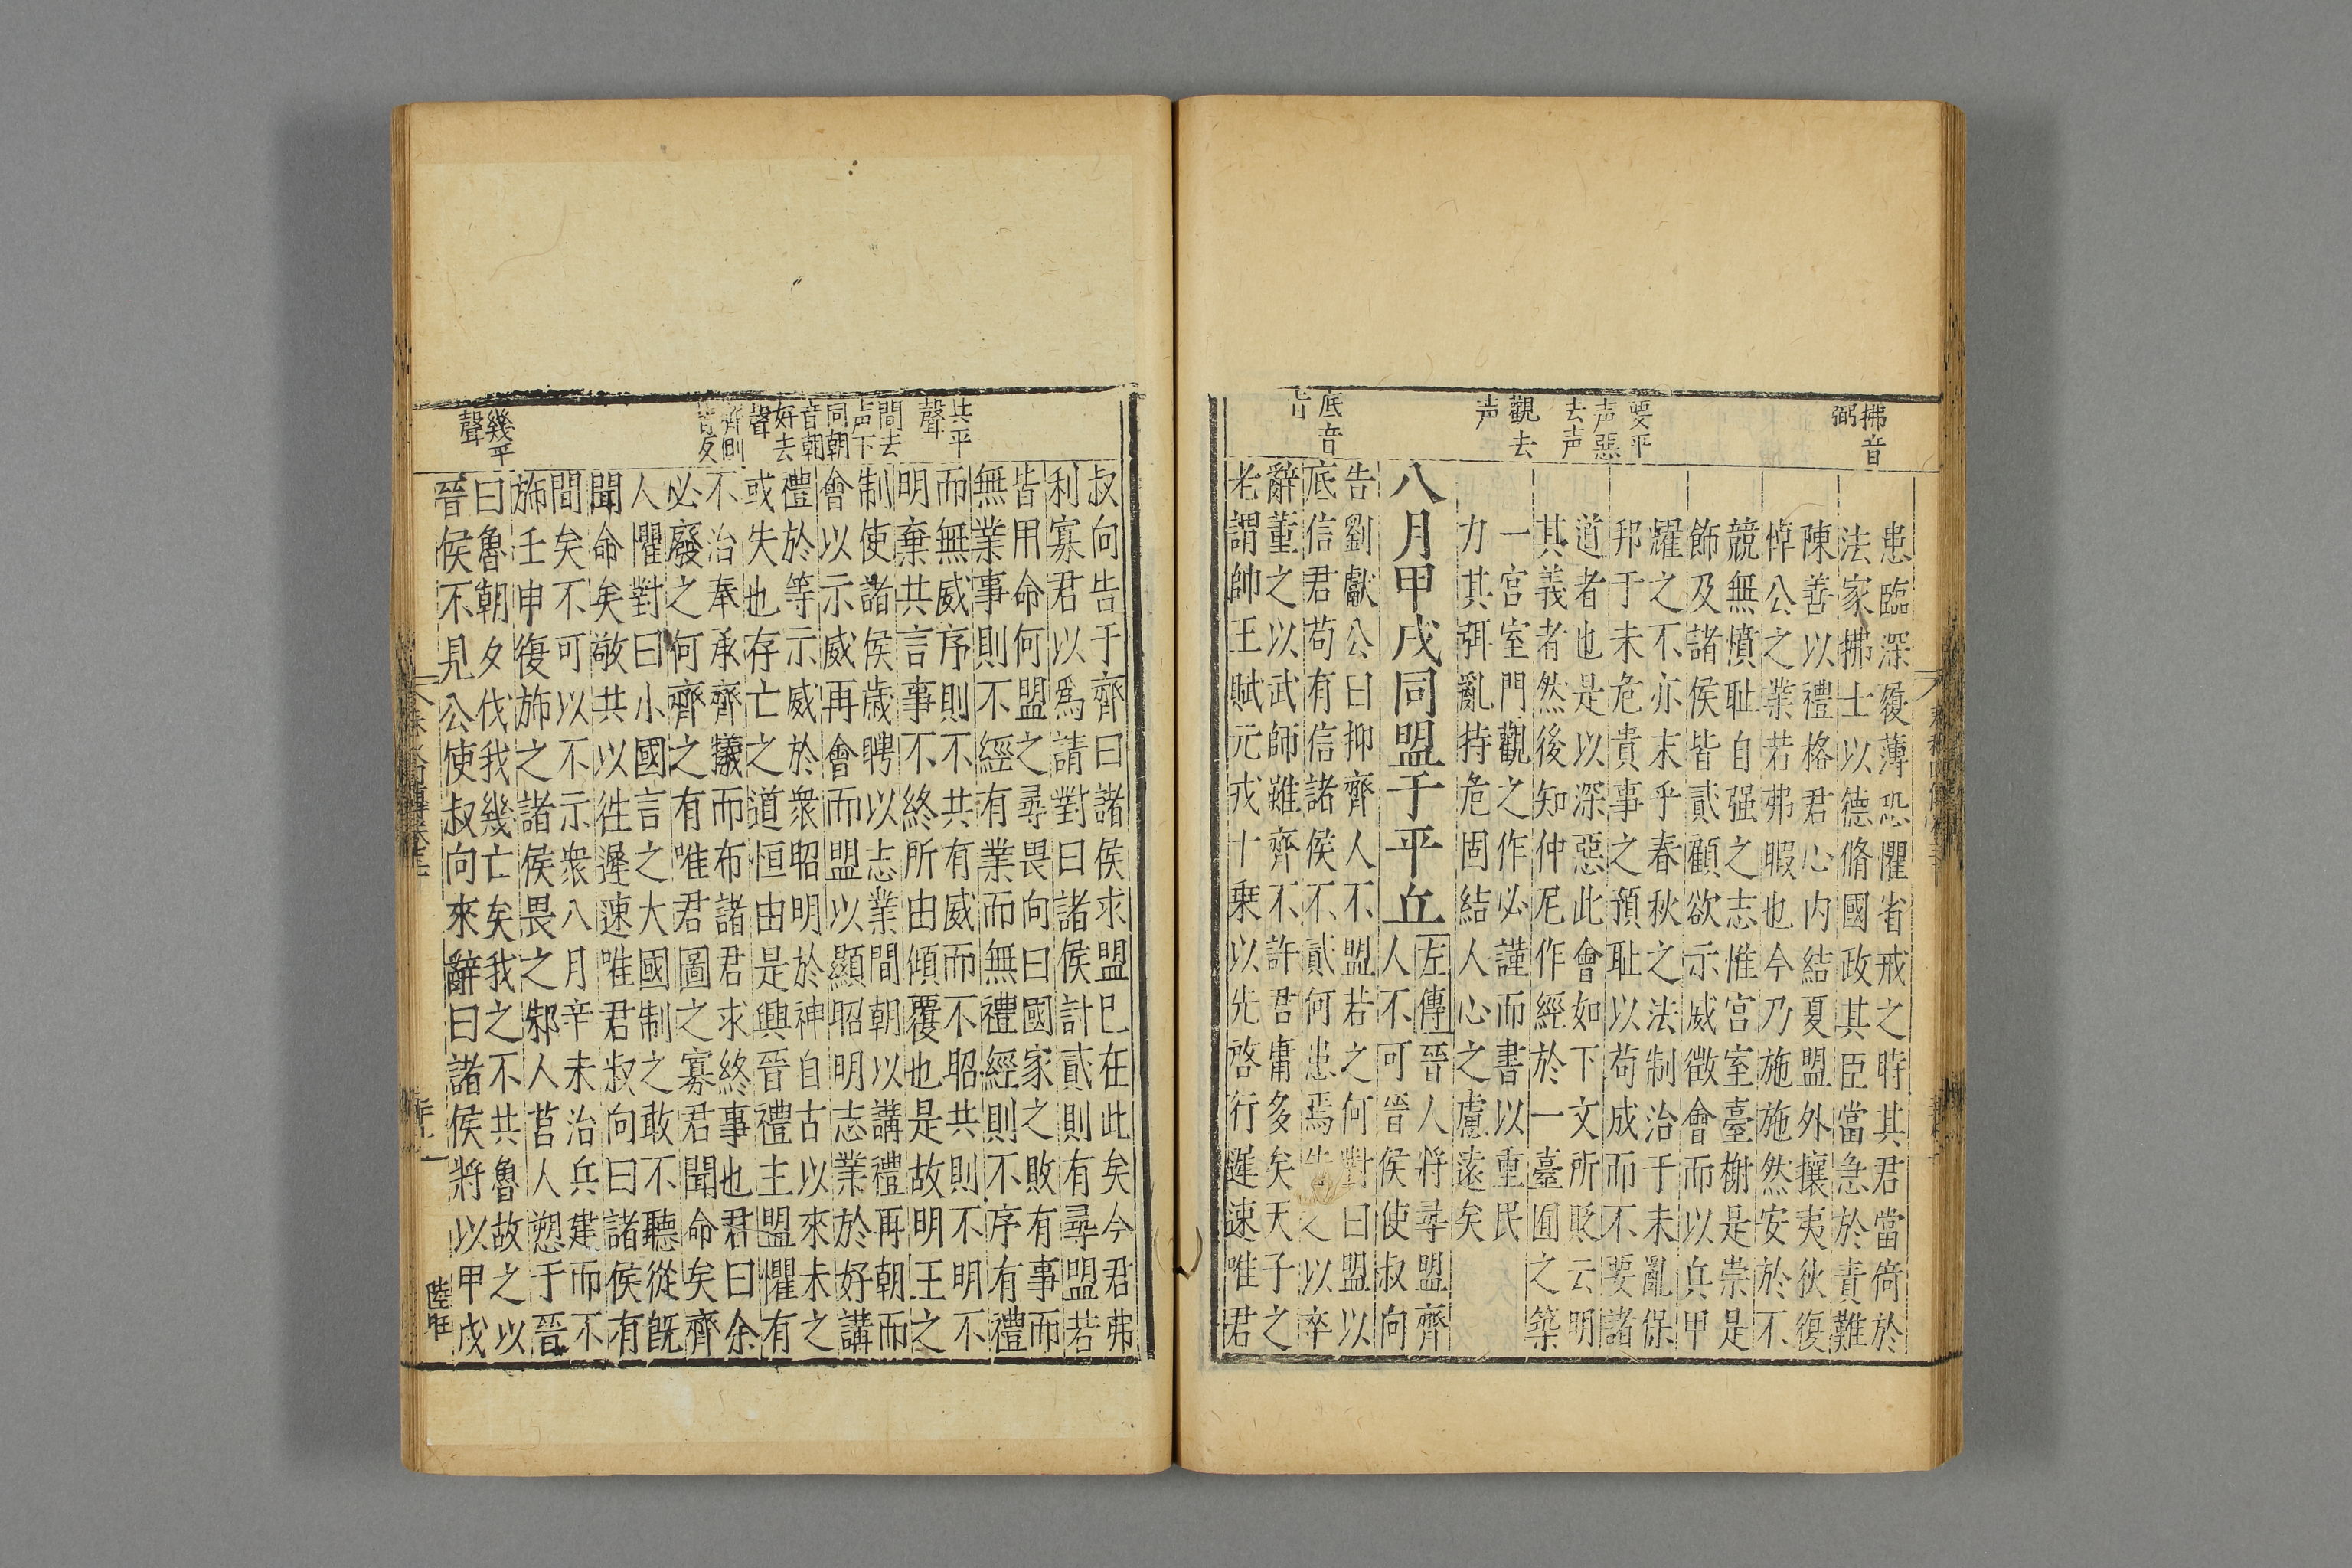 拂音
弼
要平
声惡
去声
觀去
声
底音
旨
患臨深履薄恐懼省戒之時其君當倚於
法家拂士以德脩國政其臣當急於責難
陳善以禮格君心内結夏盟外攘夷狄復
悼公之業若弗暇也今乃施施然安於不
競無憤耻自强之志惟宮室臺榭是崇是
飾及諸侯皆貳顧欲示威徵會而以兵甲
耀之不亦末乎春秋之法制治于未亂保
邦于未危貴事之預耻以苟成而不要諸
道者也是以深惡此會如下文所貶云明
其義者然後知仲尼作經於一臺囿之築
一宮室門觀之作必謹而書以重民
力其弭亂持危固結人心之慮遠矣
八月甲戌同盟于平丘
左傳晉人將尋盟齊
人不可晉侯使叔向
告劉獻公曰抑齊人不盟若之何對曰盟以
底信君苟有信諸侯不貳何患焉告之以
辭董之以武師雖齊不許君庸多矣天子之
老謂帥王賦元戎十乗以先啓行遲速唯君
共平
聲
間去
声下
同朝
音朝
好去
聲
齊側
皆反
幾平
聲
叔向告于齊曰諸侯求盟已在此矣今君弗
利寡君以爲請對曰諸侯討貳則有尋盟若
皆用命何盟之尋畏向曰國家之敗有事而
無業事則不經有業而無禮經則不序有禮
而無威序則不共有威而不昭共則不明不
明棄共言事不終所由傾覆也是故明王之
制使諸侯歲聘以志業間朝以講禮再朝而
會以示威再會而盟以顯昭明志業於好講
禮於等示威於衆昭明於神自古以來未之
或失也存亡之道恒由是興晉禮主盟懼有
不治奉承齊犧而布諸君求終事也君曰余
必廢之何齊之有唯君圖之寡君聞命矣齊
人懼對曰小國言之大國制之敢不聽從旣
聞命矣敬共以徃遲速唯君叔向曰諸侯有
間矣不可以不示衆八月辛未治兵建而不
斾壬申復斾之諸侯畏之邾人莒人愬于晉
曰魯朝夕伐我幾亡矣我之不共魯故之以
晉侯不見公使叔向來辭曰諸侯將以甲戌